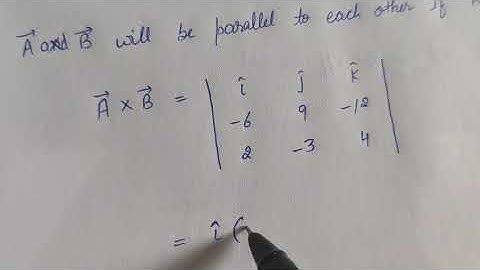 A⃗ and B⃗ will be parallel to each other if
A⃗ × B⃗ = | î ĵ k̂ |
| -6 9 -12 |
| 2 -3 4 |
= î (